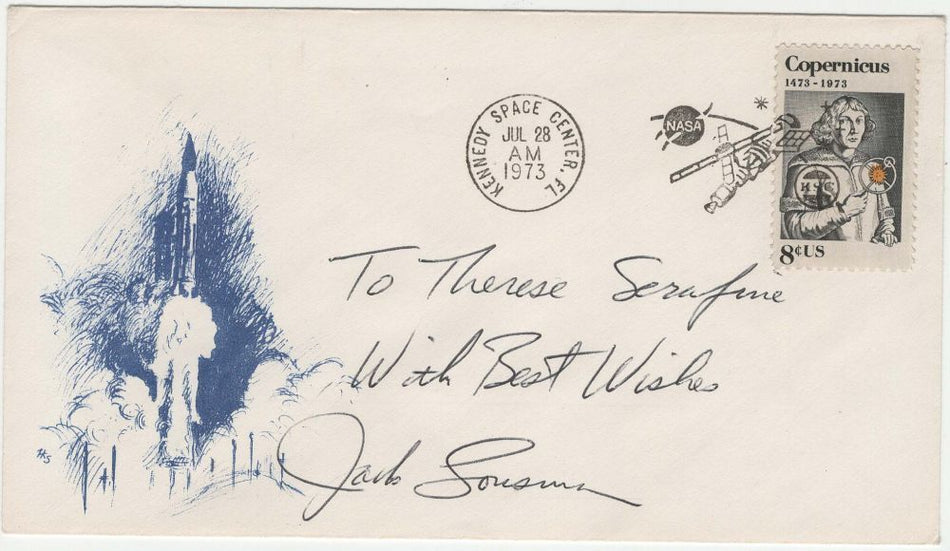 Copernicus
1473-1973
KENNEDY SPACE CENTER, FL
JUL 28
AM
1973
NASA
KSC
8¢ US
To Therese Serafine
With Best Wishes
Jack Lousma
HS